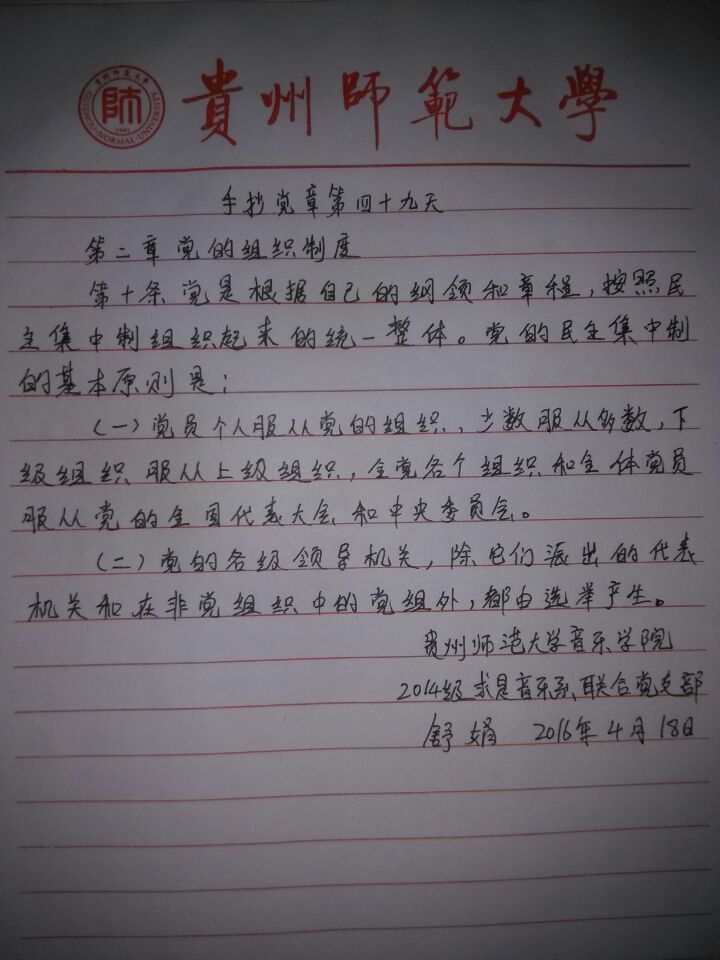 貴州師範大學
貴州师范大学
師
1941
GUIZHOU·NORMAL·UNIVERSITY
手抄党章第四十九天
第二章党的组织制度
第十条党是根据自己的纲领和章程，按照民
主集中制组织起来的统一整体。党的民主集中制
的基本原则是：
（一）党员个人服从党的组织、少数服从多数，下
级组织服从上级组织，全党各个组织和全体党员
服从党的全国代表大会和中央委员会。
（二）党的各级领导机关，除它们派出的代表
机关和在非党组织中的党组外，都由选举产生。
贵州师范大学音乐学院
2014级求是音乐系联合党支部
舒娟 2016年4月18日